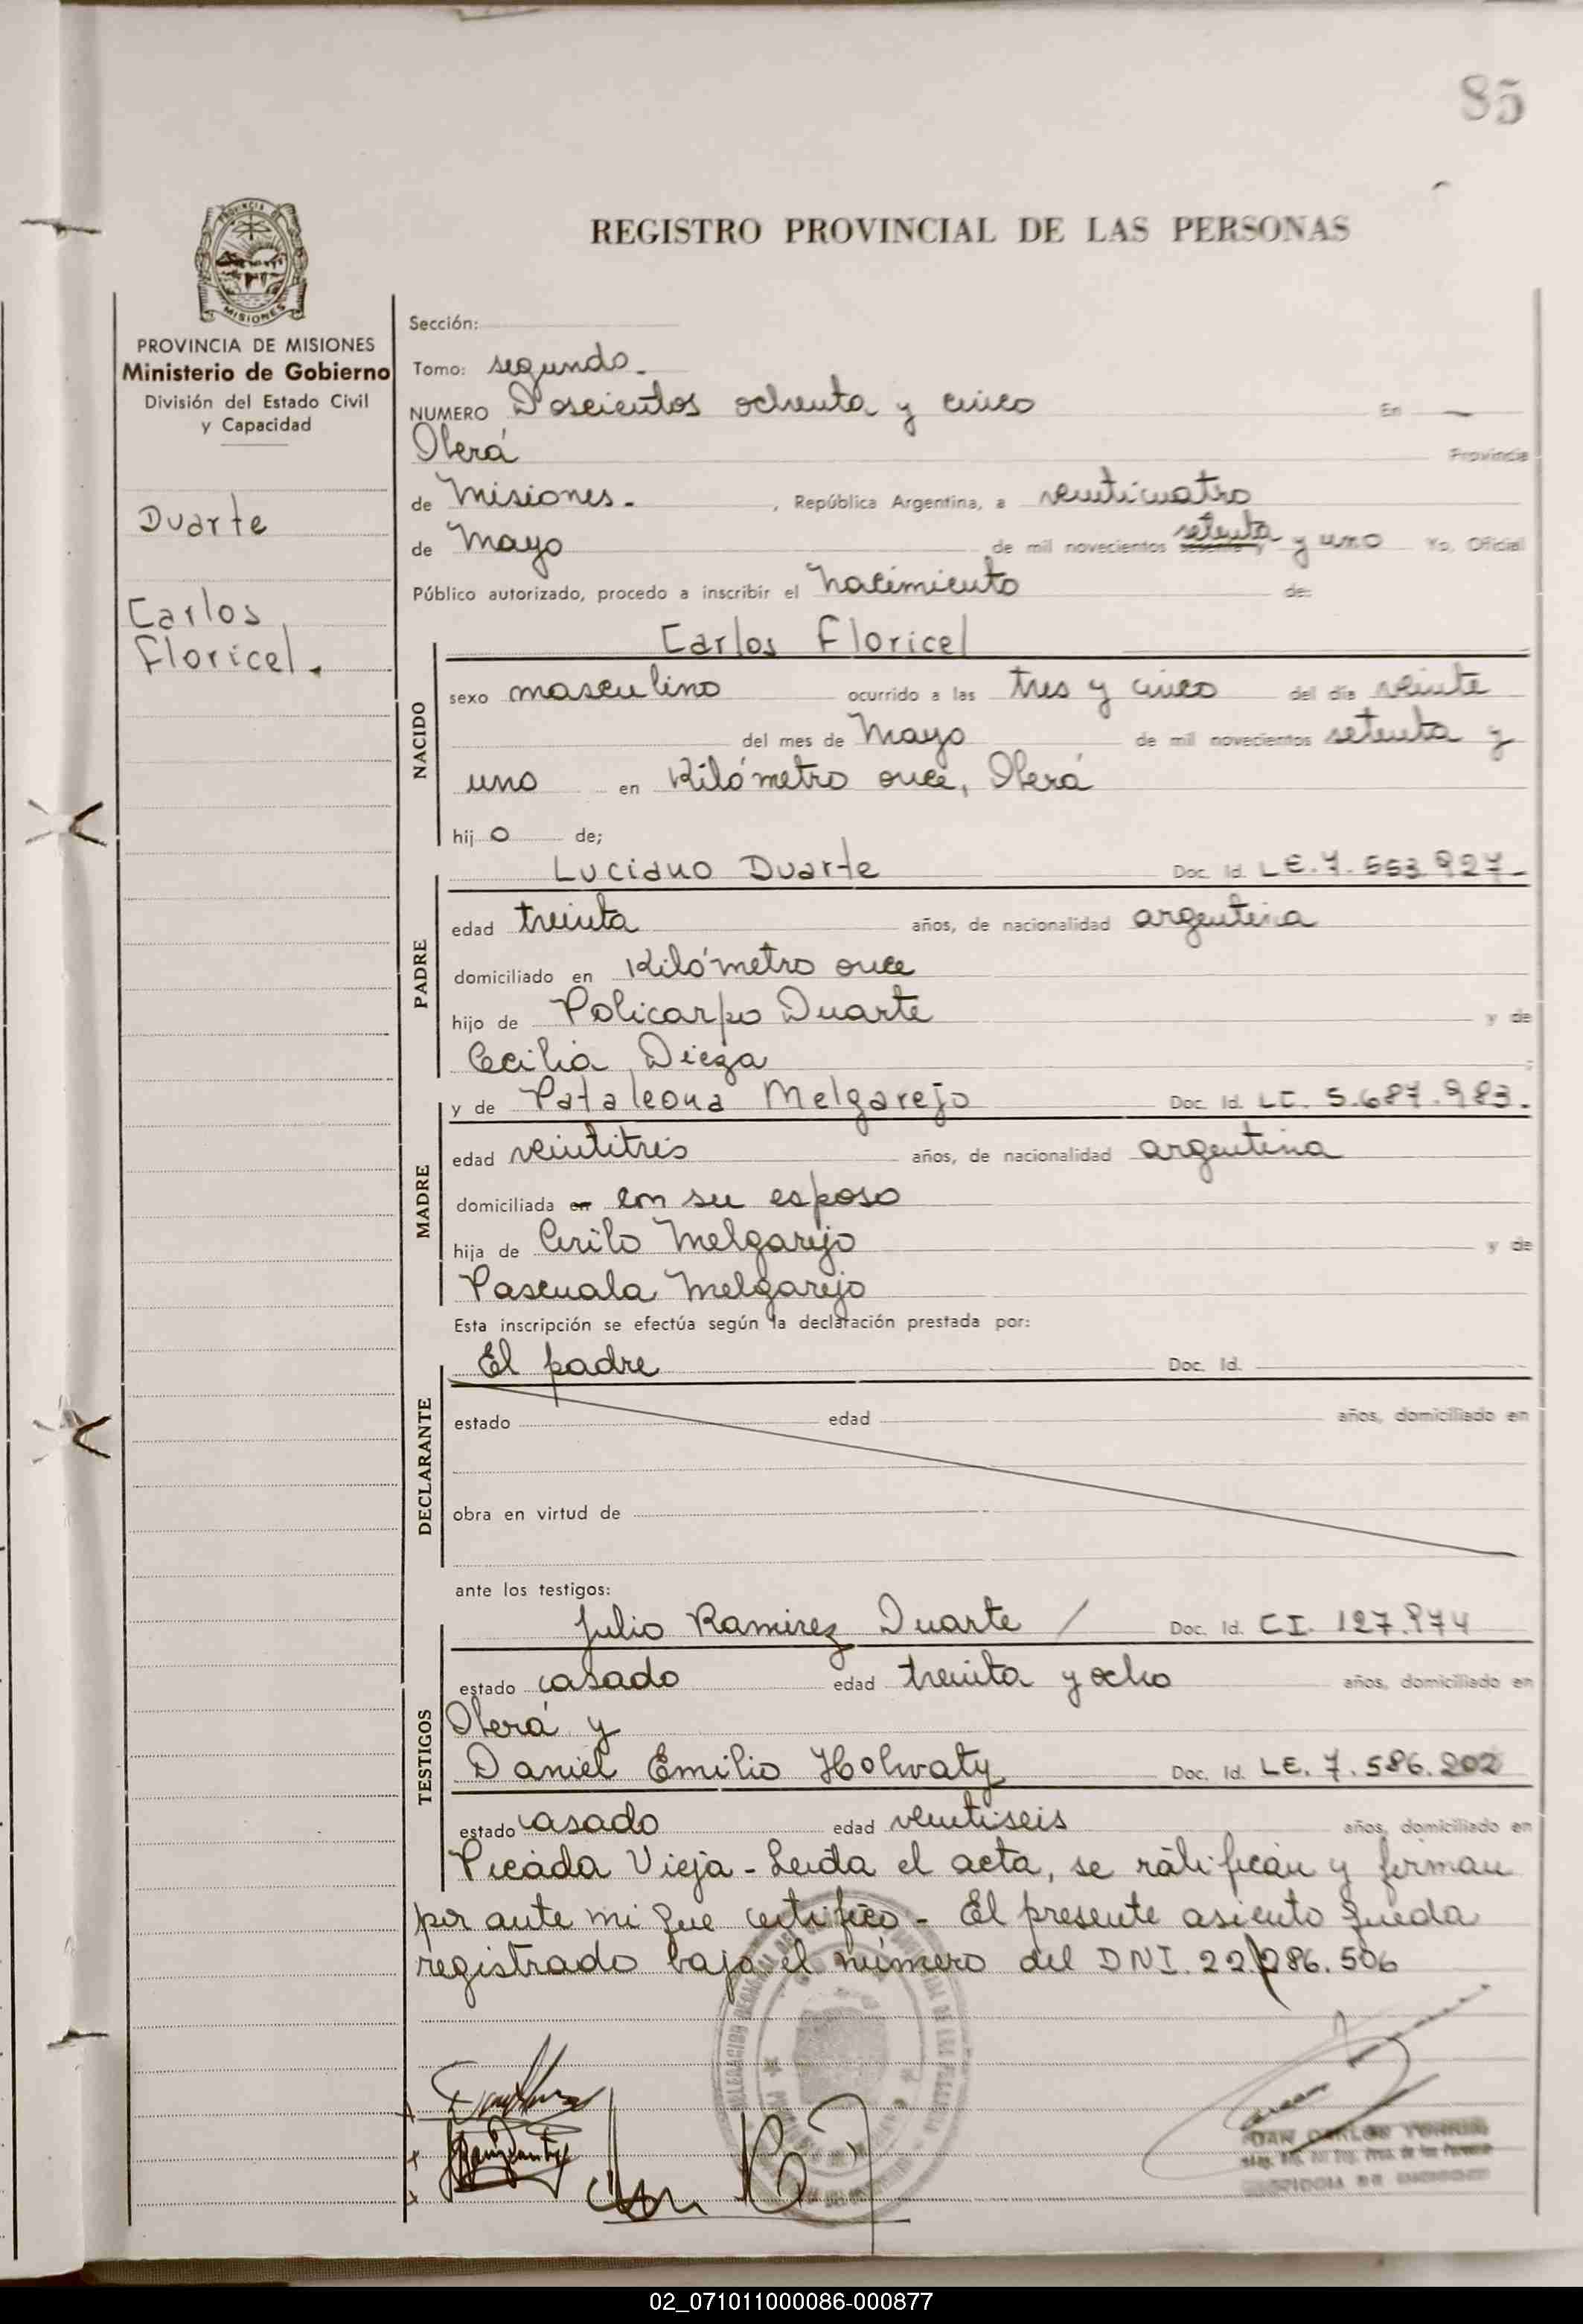 85
REGISTRO PROVINCIAL DE LAS PERSONAS
PROVINCIA DE MISIONES
Ministerio de Gobierno
División del Estado Civil
y Capacidad
Duarte
Carlos
Floricel.
Sección:
Tomo: segundo.
NUMERO Doscientos ochenta y cinco En —
Oberá Provincia
de Misiones. , República Argentina, a veinticuatro
de Mayo de mil novecientos setenta y uno Yo, Oficial
Público autorizado, procedo a inscribir el nacimiento de:
Carlos Floricel
NACIDO
sexo masculino ocurrido a las tres y cinco del día veinte
del mes de Mayo de mil novecientos setenta y
uno en Kilómetro once, Oberá
hij o de;
Luciano Duarte Doc. Id. LE. 7.553.927-
PADRE
edad treinta años, de nacionalidad argentina
domiciliado en Kilómetro once
hijo de Policarpo Duarte y de
Cecilia Dieza ;
y de Pataleona Melgarejo Doc. Id. LC. 5.687.983.
MADRE
edad veintitres años, de nacionalidad argentina
domiciliada en con su esposo
hija de Cirilo Melgarejo y de
Pascuala Melgarejo
Esta inscripción se efectúa según la declaración prestada por:
El padre Doc. Id.
DECLARANTE
estado edad años, domiciliado en
obra en virtud de
ante los testigos:
Julio Ramirez Duarte / Doc. Id. CI. 127.974
TESTIGOS
estado casado edad treinta y ocho años, domiciliado en
Oberá y
Daniel Emilio Holwaty Doc. Id. LE. 7.586.202
estado casado edad veintiseis años, domiciliado en
Picada Vieja - Leída el acta, se ratifican y firman
por ante mi que certifico - El presente asiento queda
registrado bajo el número del DNI. 22.286.506
02_071011000086-000877